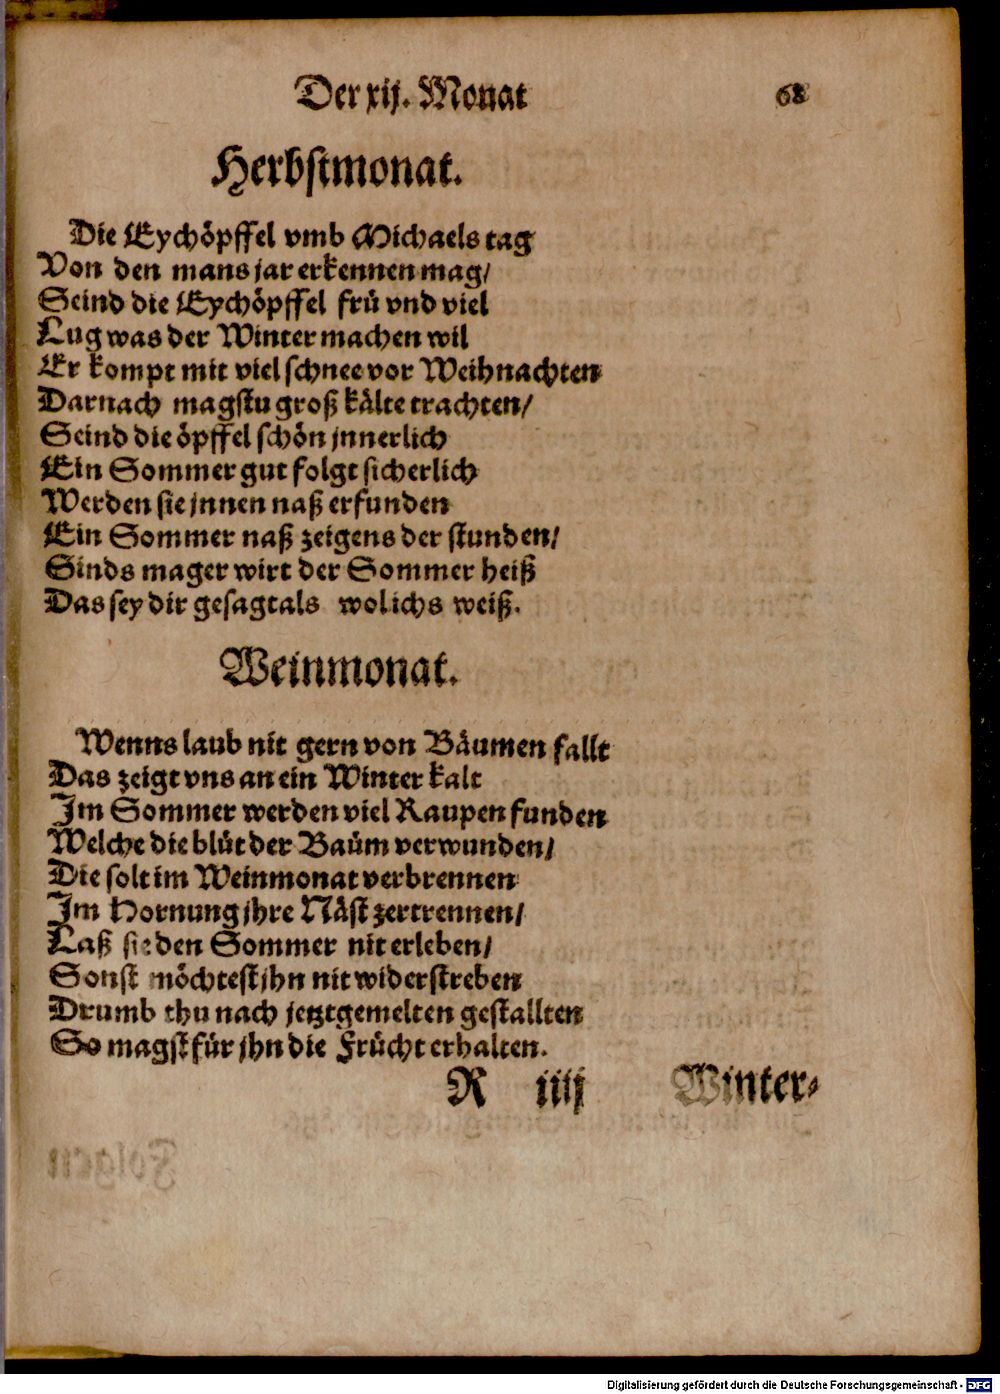 Der xij. Monat 68
Herbstmonat.
Die Eychöpffel vmb Michaels tag
Von den mans jar erkennen mag/
Seind die Eychöpffel frü vnd viel
Lug was der Winter machen wil
Er kompt mit viel schnee vor Weihnachten
Darnach magstu groß kälte trachten/
Seind die öpffel schön jnnerlich
Ein Sommer gut folgt sicherlich
Werden sie jnnen naß erfunden
Ein Sommer naß zeigens der stunden/
Sinds mager wirt der Sommer heiß
Das sey dir gesagt als wol ichs weiß.
Weinmonat.
Wenns laub nit gern von Bäumen fallt
Das zeigt vns an ein Winter kalt
Im Sommer werden viel Raupen funden
Welche die blüt der Baüm verwunden/
Die solt im Weinmonat verbrennen
Im Hornung jhre Näst zertrennen/
Laß sie den Sommer nit erleben/
Sonst möchtest jhn nit widerstreben
Drumb thu nach jetztgemelten gestallten
So magst für jhn die Frücht erhalten.
R iiij Winter-
Digitalisierung gefördert durch die Deutsche Forschungsgemeinschaft - DFG